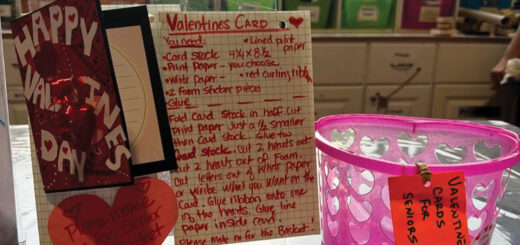 HAPPY
VALENTINES
DAY
Valentines Card
You need:
• Card stock 4¼ x 8½
• Lined print paper
• Print Paper - you choose
• White Paper -
• red curling ribbon
• 2 Foam sticker pieces
Glue
Fold Card Stock in half. Cut
print paper just a ½ smaller
then Card Stock. Glue to
Card stock. Cut 2 hearts out
Cut 2 hearts out of Foam.
Cut letters out of White paper
or Write what you want on the
Card. Glue ribbon onto one
of the hands. Glue line
paper inside card
Please make for the Basket!
make
VALENTINE
CARDS
FOR
SENIORS